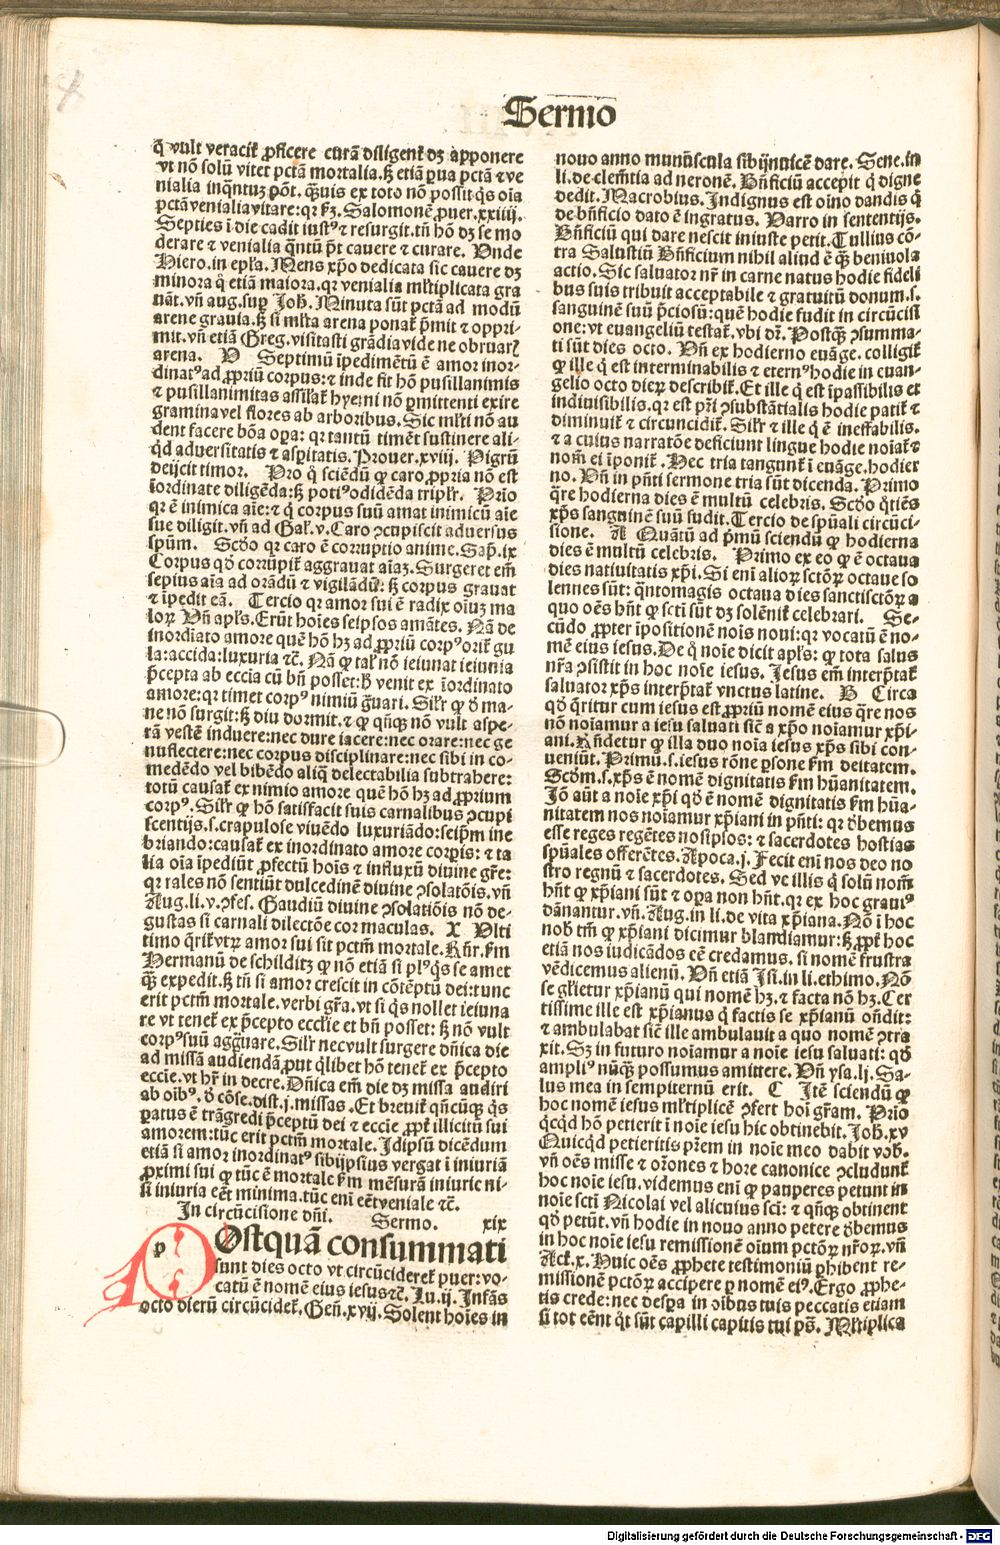 Sermo
q̄ vult veracit̄ ꝓficere curā diligent̄ dꝫ apponere
vt nō solū vitet pctā mortalia. sꝫ etiā ꝑua pctā ⁊ ve
nialia inqͣntuꝫ pōt. qͣuis ex toto nō possit qͥs oīa
pctā venialia vitare: qꝛ fꝫ. Salomonē ꝓuer. xxiiij.
Septies ī die cadit iustꝰ ⁊ resurgit. tn̄ hō dꝫ se mo
derare ⁊ venialia qͣntū pt̄ cauere ⁊ curare. Vnde
Hiero. in epl̄a. Mens xp̄o dedicata sic cauere dꝫ
minora qͦ etiā maiora. qꝛ venialia ml̄tiplicata gra
uāt. vn̄ aug. suꝑ Joh̄. Minuta sūt pctā ad modū
arene grauia. sꝫ si ml̄ta arena ponat̄ p̄mit ⁊ oppri-
mit. vn̄ etiā Greg. vitasti grādia vide ne obruarꝭ
arena. V Septimū īpedimētū ē amor inor-
dinatꝰ ad ꝓpriū corpus: ⁊ inde fit hō pusillanimis
⁊ pusillanimitas assilat̄ hyemi nō ꝑmittenti exire
gramina vel flores ab arboribus. Sic ml̄ti nō au
dent facere bōa oꝑa: qꝛ tantū timēt sustinere ali-
qͥd aduersitatis ⁊ asꝑitatis. Prouer. xviij. Pigrū
deijcit timor. Pro qͦ sciēdū ꝙ caro ꝓpria nō est
īordinate diligēda: sꝫ potiꝰ odiēda tripl̄r. Prīo
qꝛ ē inimica aīe: ⁊ qͥ corpus suū amat inimicū aīe
sue diligit. vn̄ ad Gal̄. v. Caro ꝯcupiscit aduersus
spūm. Scd̄o qꝛ caro ē corruptio anime. Sap̄. ix
Corpus qd̄ corrūpit̄ aggrauat aīaꝫ. Surgeret em̄
sepius aīa ad orādū ⁊ vigilādū: sꝫ corpus grauat
⁊ īpedit eā. Tercio qꝛ amor sui ē radix oīuꝫ ma
loꝝ. Vn̄ apl̄s. Erūt hoīes seipsos amātes. Nā de
inordīato amore quē hō hꝫ ad ꝓpriū corpꝰ orit̄ gu
la: accidia: luxuria ⁊c̄. Nā ꝙ tal̄ nō ieiunat ieiunia
p̄cepta ab eccīa cū bn̄ posset: h̄ venit ex īordinato
amore: qꝛ timet corpꝰ nimiū gͣuari. Sil̄r ꝙ d̄ ma-
ne nō surgit: sꝫ diu dormit. ⁊ ꝙ qn̄qꝫ nō vult aspe-
rā vestē induere: nec dure iacere: nec orare: nec ge
nuflectere: nec corpus disciplinare: nec sibi in co-
medēdo vel bibēdo aliqͣ delectabilia subtrahere:
totū causat̄ ex nimio amore quē hō hꝫ ad ꝓprium
corpꝰ. Sil̄r ꝙ hō satisfacit suis carnalibus ꝯcupi
scentijs. s. crapulose viuēdo luxuriādo: seip̄m ine
briando: causat̄ ex inordinato amore corꝑis: ⁊ ta
lia oīa īpediūt ꝓfectū hoīs ⁊ influxū diuine gr̄e:
qꝛ tales nō sentiūt dulcedinē diuine ꝯsolatōis. vn̄
Aug. li. v. ꝯfes. Gaudiū diuine ꝯsolatiōis nō de-
gustas si carnali dilectōe cor maculas. X Vlti
timo qͣrit̄ vtꝝ amor sui sit pctm̄ mortale. Rn̄r. fm̄
Hermanū de schilditꝫ ꝙ nō etiā si plꝰ qͥs se amet
qͣꝫ expedit. sꝫ tn̄ si amor crescit in cōtēptū dei: tunc
erit pctm̄ mortale. verbi gr̄a. vt si qͥs nollet ieiuna
re vt tenet̄ ex p̄cepto eccl̄ie et bn̄ posset: sꝫ nō vult
corpꝰ suū aggͣuare. Sil̄r nec vult surgere dn̄ica die
ad missā audiendā ꝓut qͥlibet hō tenet̄ ex p̄cepto
eccīe. vt hr̄ in decre. Dn̄ica em̄ die dꝫ missa audiri
ab oībꝰ. d̄ cōse. dist. j. missas. Et breuit̄ qn̄cūqꝫ qͥs
ꝑatus ē trāsgredi p̄ceptū dei ⁊ eccīe ꝓpt̄ illicitū sui
amorem: tūc erit pctm̄ mortale. Idipsū dicēdum
etiā si amor inordinatꝰ sibijpsius vergat ī iniuriā
ꝓximi sui ꝙ tūc ē mortale fm̄ mēsurā iniurie ni-
si iniuria eēt minima. tūc eni eēt veniale ⁊c̄.
In circūcisione dn̄i. Sermo. xix
p
Ostquā consummati
sunt dies octo vt circūcideret̄ puer: vo-
catū ē nomē eius iesus ⁊c̄. Lu. ij. Infās
octo dierū circūcidet̄, Gen̄. xvij. Solent hoīes in
nouo anno munuscula sibijnuicē dare. Sene. in
li. de clemētia ad neronē. Bn̄ficiū accepit qͥ digne
dedit. Macrobius. Indignus est oīno dandis qͥ
de bn̄ficio dato ē ingratus. Varro in sententijs.
Bn̄ficiū qui dare nescit iniuste petit. Tullius cō-
tra Salustiū Bn̄ficium nihil aliud ē qͣꝫ beniuola
actio. Sic saluator nr̄ in carne natus hodie fideli
bus suis tribuit acceptabile ⁊ gratuitū donum. s.
sanguinē suū p̄ciosū: quē hodie fudit in circūcisi
one: vt euangeliū testat̄. vbi dr̄. Postqͣꝫ ꝯsumma-
ti sūt dies octo. Vn̄ ex hodierno euāge. colligit̄
ꝙ ille qͥ est interminabilis ⁊ eternꝰ hodie in euan-
gelio octo dieꝝ describit̄. Et ille qͥ est īpassibilis et
indiuisibilis. qꝛ est pr̄i ꝯsubstātialis hodie patit̄ ⁊
diminuit̄ ⁊ circuncidit̄. Sil̄r ⁊ ille qͥ ē ineffabilis.
⁊ a cuius narratōe deficiunt lingue hodie noīat̄ ⁊
nom̄ ei īponit̄. Hec tria tangunt̄ ī euāge. hodier
no. Vn̄ in pn̄ti sermone tria sūt dicenda. Primo
qͣre hodierna dies ē multū celebris. Scd̄o qͦtiēs
xp̄s sanguinē suū fudit. Tercio de spūali circūci-
sione. A Quātū ad p̄mū sciendū ꝙ hodierna
dies ē multū celebris. Primo ex eo ꝙ ē octaua
dies natiuitatis xp̄i. Si eni alioꝝ sctōꝝ octaue so
lennes sūt: qͣntomagis octaua dies sanctisctōꝝ a
quo oēs hn̄t ꝙ scti sūt dꝫ solēnit̄ celebrari. Se-
cūdo ꝓpter īpositionē noīs noui: qꝛ vocatū ē no-
mē eius iesus. De qͦ noīe dicit apl̄s: ꝙ tota salus
nr̄a ꝯsistit in hoc noīe iesus. Jesus em̄ interp̄tat̄
saluator xp̄s interp̄tat̄ vnctus latine. B Circa
qd̄ qͣritur cum iesus est ꝓpriū nomē eius qͣre nos
nō noīamur a iesu saluati sic̄ a xp̄o noīamur xp̄i-
ani. Rn̄detur ꝙ illa duo noīa iesus xp̄s sibi con-
ueniūt. Primū. s. iesus rōne ꝑsone fm̄ deitatem.
Scd̄m. s. xp̄s ē nomē dignitatis fm̄ hūanitatem.
Jō aūt a noīe xp̄i qd̄ ē nomē dignitatis fm̄ hūa-
nitatem nos noīamur xp̄iani in pn̄ti: qꝛ debemus
esse reges regētes nosipsos: ⁊ sacerdotes hostias
spūales offerētes. Apoca. j. Fecit eni nos deo no
stro regnū ⁊ sacerdotes. Sed ve illis qͥ solū nom̄
hn̄t ꝙ xp̄iani sūt ⁊ oꝑa non hn̄t. qꝛ ex hoc grauiꝰ
dānantur. vn̄. Aug. in li. de vita xp̄iana. Nō ī hoc
nob̄ tm̄ ꝙ xp̄iani dicimur blandiamur: sꝫ ꝓpt̄ hoc
etiā nos iudicādos eē credamus. si nomē frustra
vēdicemus alienū. Vn̄ etiā Isi. in li. ethimo. Nō
se gl̄ietur xp̄ianū qui nomē hꝫ. ⁊ facta nō hꝫ. Cer
tissime ille est xp̄ianus qͥ factis se xp̄ianū on̄dit:
⁊ ambulabat sic̄ ille ambulauit a quo nomē ꝯtra
xit. Sꝫ in futuro noīamur a noīe iesu saluati: qd̄
ampliꝰ nūqͣꝫ possumus amittere. Vn̄ ysa. lj. Sa-
lus mea in sempiternū erit. C Itē sciendū ꝙ
hoc nomē iesus ml̄tiplicē ꝯfert hoī gr̄am. Prīo
qͥcqͥd hō petierit ī noīe iesu hic obtinebit. Joh̄. xv
Quicqͥd petieritis pr̄em in noīe meo dabit vob̄.
vn̄ oēs misse ⁊ or̄ones ⁊ hore canonice ꝯcludunt̄
hoc noīe iesu. videmus eni ꝙ pauperes petunt in
noīe scti Nicolai vel alicuius sci: ⁊ qn̄qꝫ obtinent
qd̄ petūt. vn̄ hodie in nouo anno petere debemus
in hoc noīe iesu remissionē oīum pctōꝝ nr̄oꝝ. vn̄
Act̄. x. Huic oēs ꝓphete testimoniū ꝑhibent re-
missionē pctōꝝ accipere ꝑ nomē eiꝰ. Ergo ꝓphe-
tis crede: nec desꝑa in oībus tuis peccatis etiam
si tot eēnt qͦt sūt capilli capitis tui p̄s. Ml̄tiplica
Digitalisierung gefördert durch die Deutsche Forschungsgemeinschaft - DFG